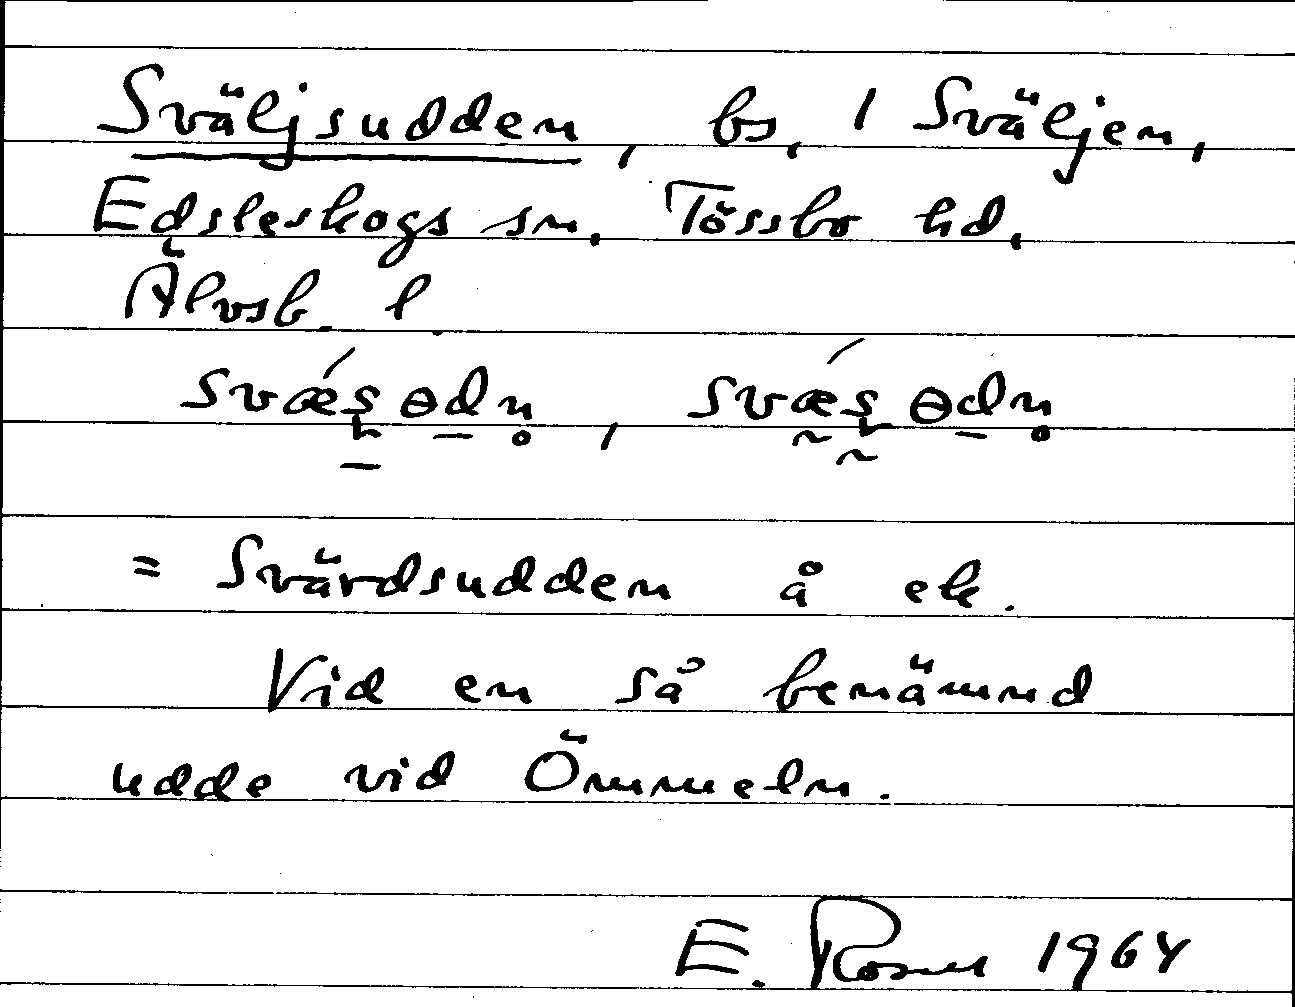 Sväljsudden, bs, 1 Sväljen,
Edsleskogs sn. Tössbo hd.
Älvsb. l.
= Svärdsudden å ek.
Vid en så benämnd
udde vid Ömmeln.
E. Rosell 1964